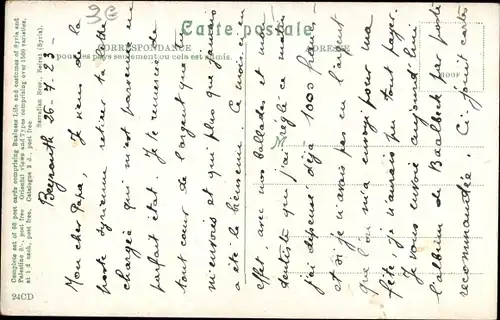 Carte postale
CORRESPONDANCE
ADRESSE
pour les pays seulement ou cela est admis.
Complete set of 60 post cards comprising Business Life and costumes of Syria and
Palestine post free Oriental views and Types comprising over 1500 varieties,
at 1 d each, post free. Catalogue 2 d., post free
Sarrafian Bros., Beirut (Syria).
24CD
Beyrouth 26-7-23
Mon cher Papa, Je viens de la
poste syrienne retirer ta lettre
chargée qui m'est parvenue en
parfait état. Je te remercie de
tout cœur de l'argent que tu
m'envoies et qui plus que jamais
a été le bienvenu. Ce mois-ci en
effet avec nos ballades et mon
dentiste que j'ai réglé ce matin
j'ai dépensé déjà 1000 francs,
et si je n'avais pas eu l'argent
que l'on m'a envoyé pour ma
fête, je n'aurais pu tout payer.
Je vous envoie aujourd'hui
l'album de Baalbeck par poste
recommandée. Ci-joint cartes